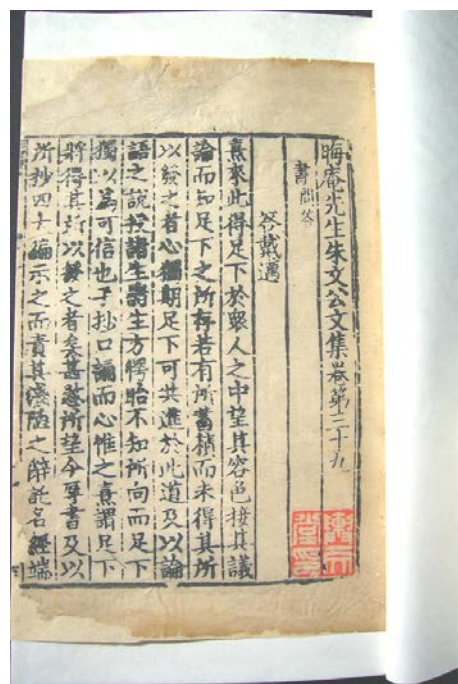 晦庵先生朱文公文集卷第三十九
書問荅
荅戴邁
熹來此得足下於衆人之中望其容色接其議
論而知足下之所存若有所蓄積而未得其所
以發之者心獨期足下可共進於此道及以論
語之說授諸生諸生方愕眙不知所向而足下
獨以爲可信也手抄口誦而心惟之熹謂足下
將得其所以發之者矣甚慰所望今辱書及以
所抄四大編示之而責其淺陋之辭託名經端